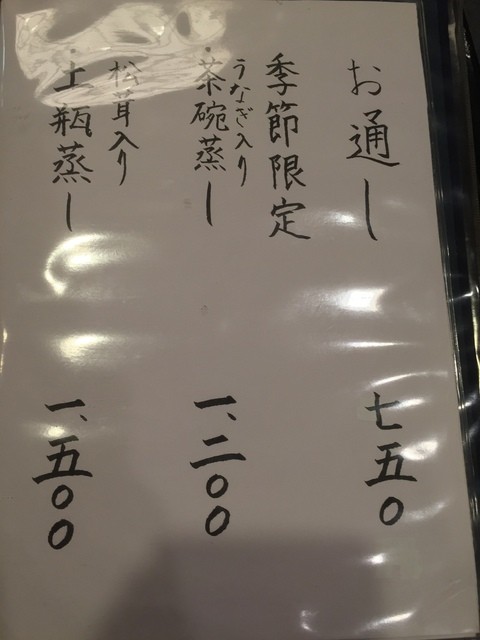 お通し 七五〇
季節限定
うなぎ入り
・茶碗蒸し 一、二〇〇
松茸入り
・土瓶蒸し 一、五〇〇